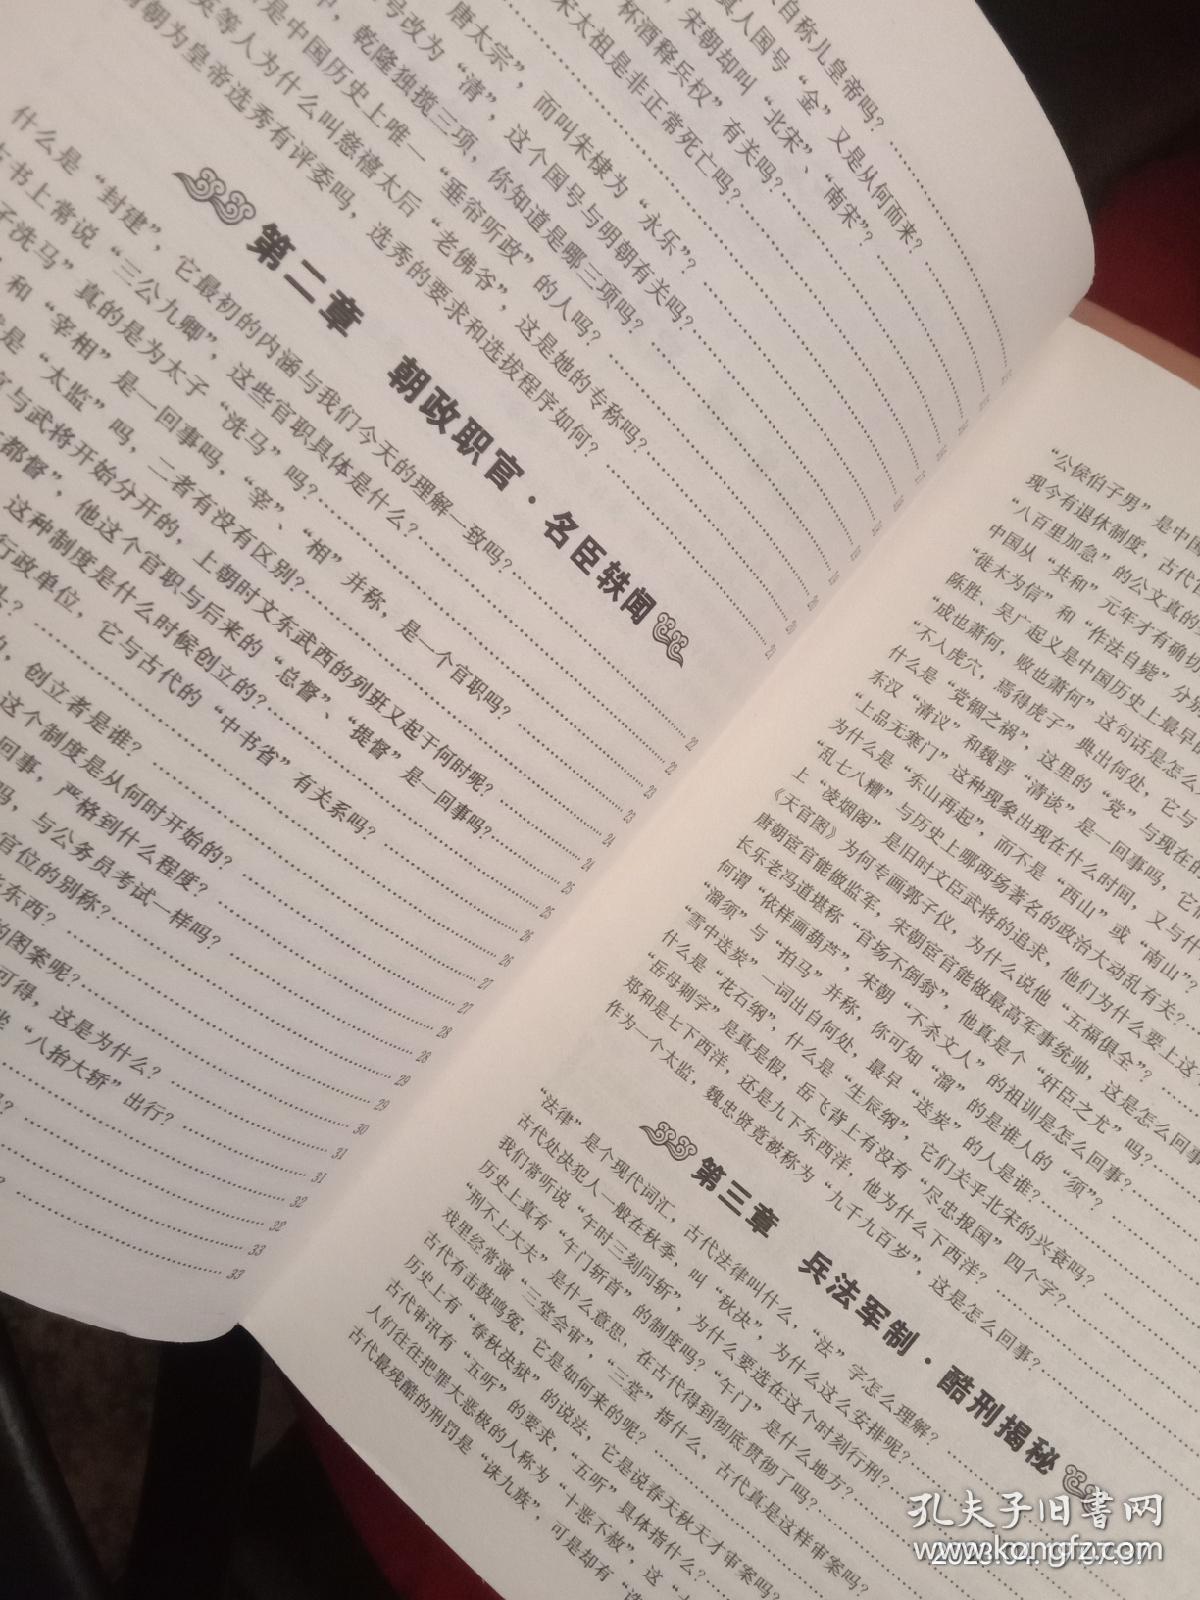 自称儿皇帝吗？
真人国号“金”又是从何而来？
宋朝却叫“北宋”、“南宋”？
杯酒释兵权”有关吗？
宋太祖是非正常死亡吗？
唐太宗”，而叫朱棣为“永乐”？
号改为“清”，这个国号与明朝有关吗？
乾隆独揽三项，你知道是哪三项吗？
是中国历史上唯一“垂帘听政”的人吗？
英等人为什么叫慈禧太后“老佛爷”，这是她的专称吗？
朝为皇帝选秀有评委吗，选秀的要求和选拔程序如何？
第二章 朝政职官·名臣轶闻
什么是“封建”，它最初的内涵与我们今天的理解一致吗？ 22
古书上常说“三公九卿”，这些官职具体是什么？ 22
子洗马”真的是为太子“洗马”吗？ 23
和“宰相”是一回事吗，“宰”、“相”并称，是一个官职吗？ 23
是“太监”吗，二者有没有区别？ 24
官与武将开始分开的，上朝时文东武西的列班又起于何时呢？ 24
都督”，他这个官职与后来的“总督”、“提督”是一回事吗？ 25
这种制度是什么时候创立的？ 25
行政单位，它与古代的“中书省”有关系吗？ 26
26
创立者是谁？ 27
这个制度是从何时开始的？ 27
回事，严格到什么程度？ 28
吗，与公务员考试一样吗？ 28
官位的别称？ 29
东西？ 29
的图案呢？ 30
可得，这是为什么？ 31
坐“八抬大轿”出行？ 31
32
32
33
33
“公侯伯子男”是中国
现今有退休制度，古代官
“八百里加急”的公文真的
中国从“共和”元年才有确切
“徙木为信”和“作法自毙”分别
陈胜、吴广起义是中国历史上最早的
“成也萧何，败也萧何”这句话是怎么
“不入虎穴，焉得虎子”典出何处，它与
什么是“党锢之祸”，这里的“党”与现在的
东汉“清议”和魏晋“清谈”是一回事吗，它们
“上品无寒门”这种现象出现在什么时间，又与什
为什么是“东山再起”，而不是“西山”或“南山”？
“乱七八糟”与历史上哪两场著名的政治大动乱有关？
上“凌烟阁”是旧时文臣武将的追求，他们为什么要上这
《天官图》为何专画郭子仪，为什么说他“五福俱全”？
唐朝宦官能做监军，宋朝宦官能做最高军事统帅，这是怎么回事
长乐老冯道堪称“官场不倒翁”，他真是个“奸臣之尤”吗？
何谓“依样画葫芦”，宋朝“不杀文人”的祖训是怎么回事？
“溜须”与“拍马”并称，你可知“溜”的是谁人的“须”？
“雪中送炭”一词出自何处，最早“送炭”的人是谁？
什么是“花石纲”，什么是“生辰纲”，它们关乎北宋的兴衰吗？
“岳母刺字”是真是假，岳飞背上有没有“尽忠报国”四个字？
郑和是七下西洋，还是九下东西洋，他为什么下西洋？
作为一个太监，魏忠贤竟被称为“九千九百岁”，这是怎么回事？
第三章 兵法军制·酷刑揭秘
“法律”是个现代词汇，古代法律叫什么，“法”字怎么理解？
古代处决犯人一般在秋季，叫“秋决”，为什么这么安排呢？
我们常听说“午时三刻问斩”，为什么要选在这个时刻行刑？
历史上真有“午门斩首”的制度吗？“午门”是什么地方？
“刑不上大夫”是什么意思，在古代得到彻底贯彻了吗？
戏里经常演“三堂会审”，“三堂”指什么，古代真是这样审案吗？
古代有击鼓鸣冤，它是如何来的呢？
历史上有“春秋决狱”的说法，它是说春天秋天才审案吗？
古代审讯有“五听”的要求，“五听”具体指什么？
人们往往把罪大恶极的人称为“十恶不赦”，这“
古代最残酷的刑罚是“诛九族”，可是却有“诛
孔夫子旧书网
www.kongfz.com